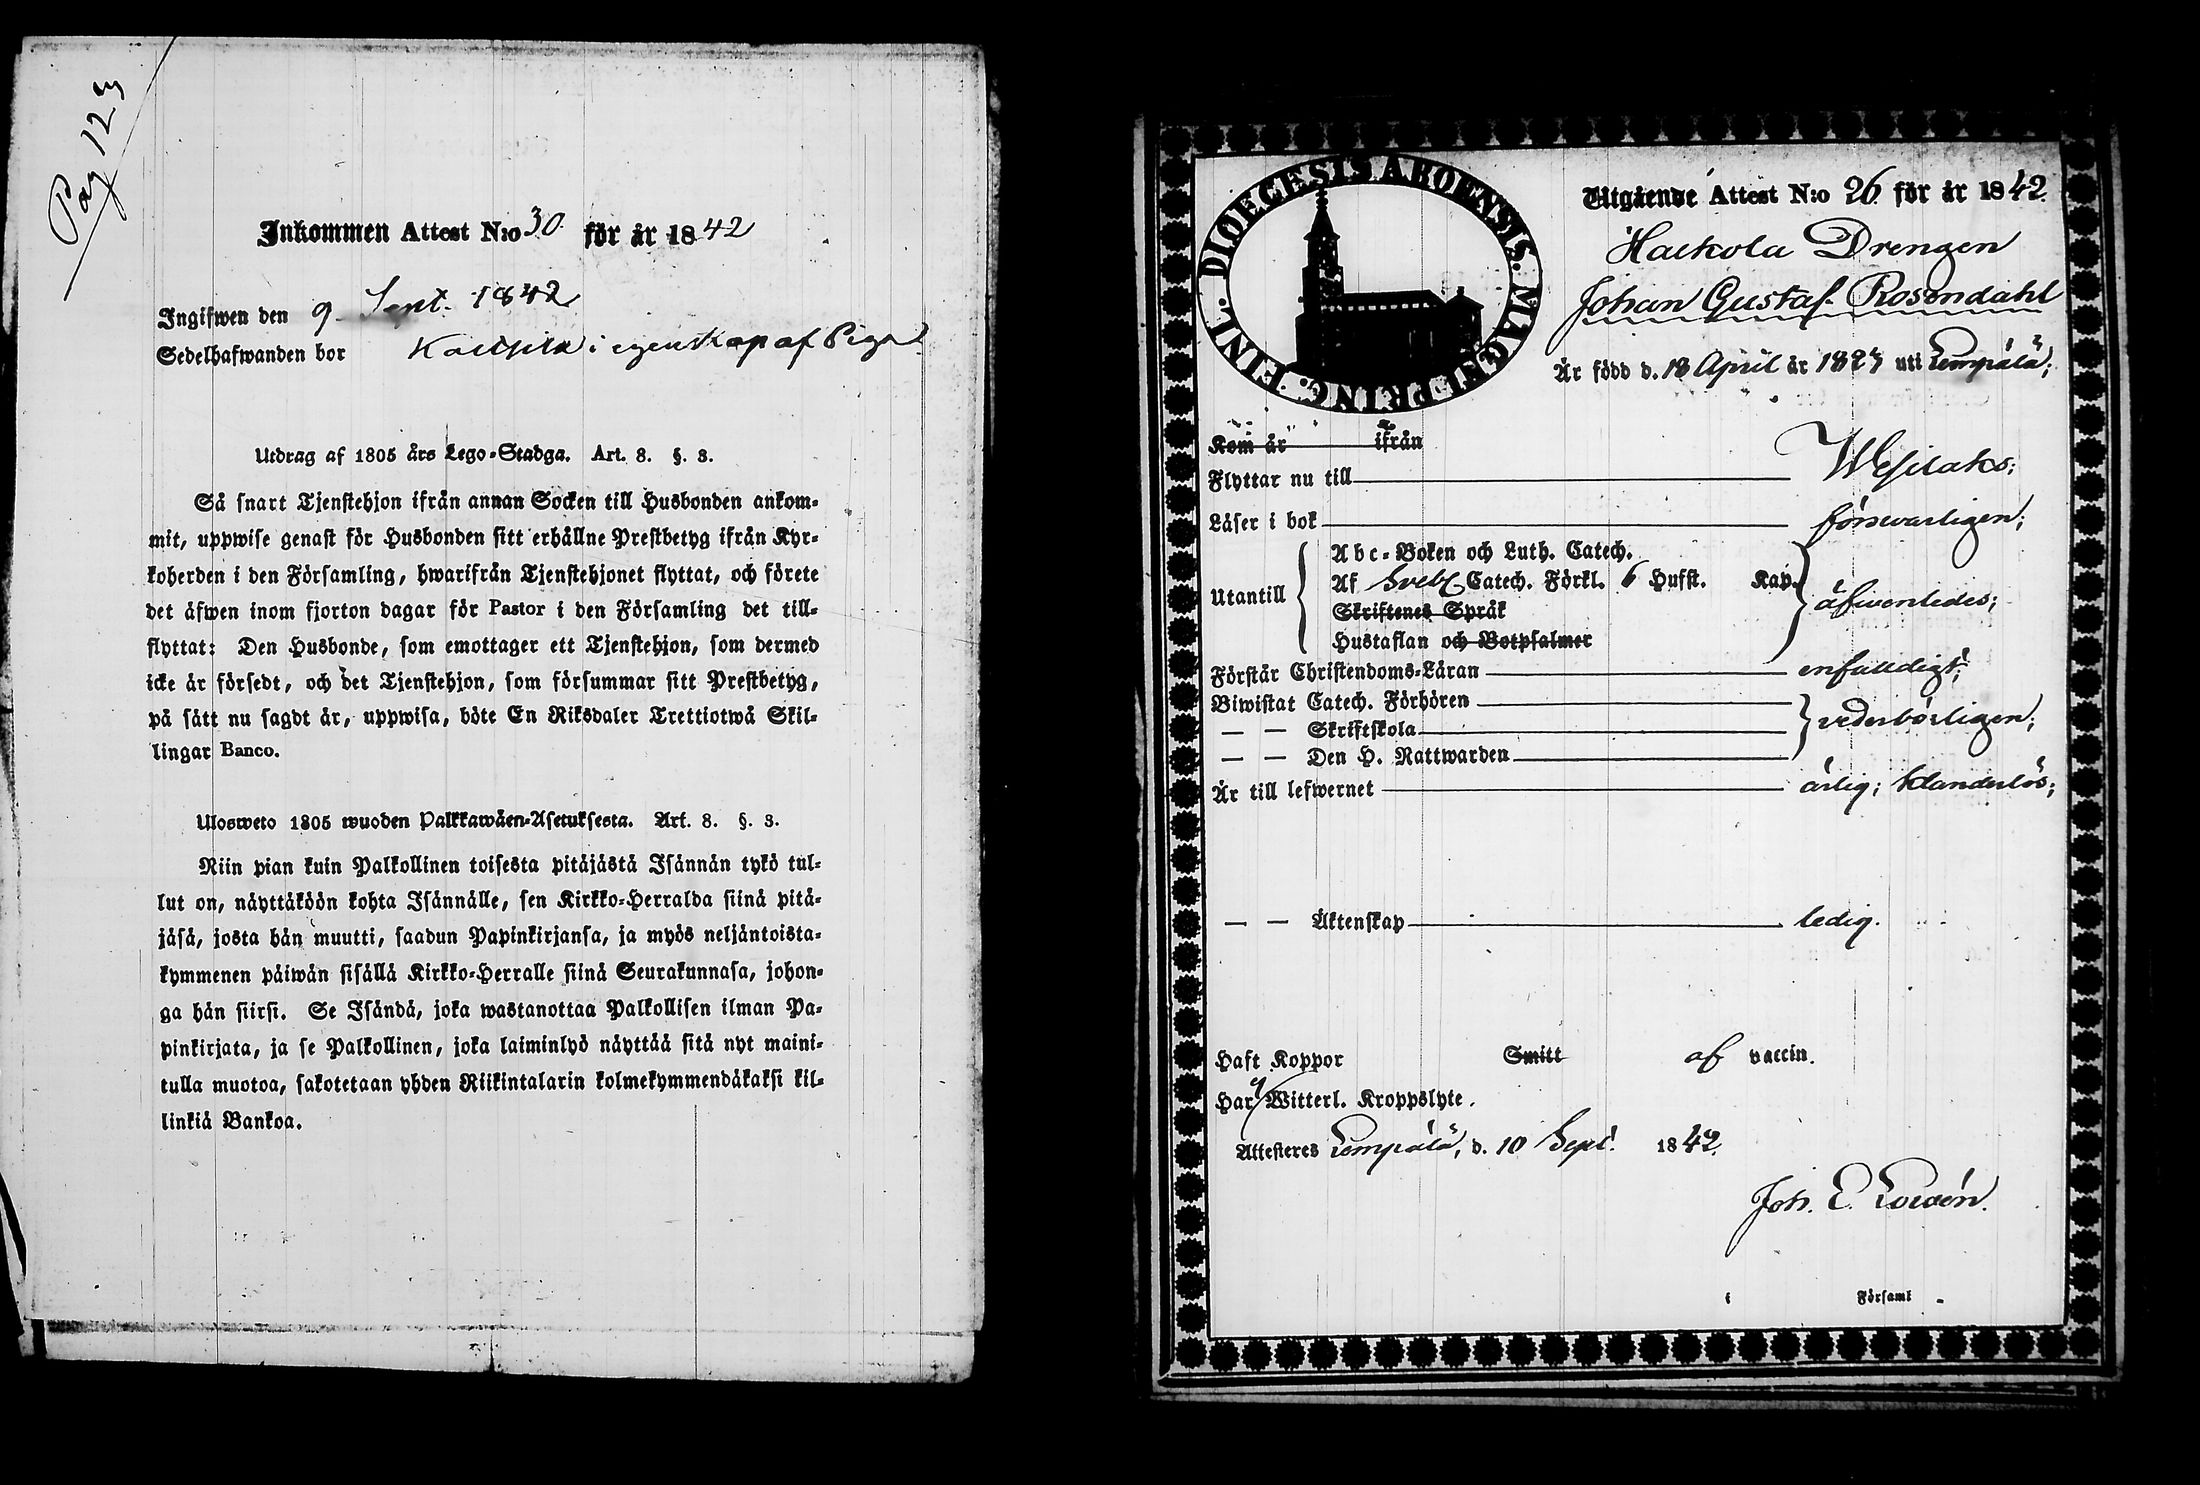 Pag 123
Inkommen Attest N:o 30 för år 1842
Ingifwen den 9 Sept. 1842
Sedelhafwanden bor i egenskap af Piga
Utdrag af 1805 års Lego-Stadga. Art. 8. §. 3.
Så snart Tjenstehjon ifrån annan Socken till Husbonden ankom-
mit, uppwise genast för Husbonden sitt erhållne Prestbetyg ifrån Kyr-
koherden i den Församling, hwarifrån Tjenstehjonet flyttat, och förete
det äfwen inom fjorton dagar för Pastor i den Församling det till-
flyttat: Den Husbonde, som emottager ett Tjenstehjon, som dermed
icke är försedt, och det Tjenstehjon, som försummar sitt Prestbetyg,
på sätt nu sagdt är, uppwisa, böte En Riksdaler Trettiotwå Skil-
lingar Banco.
Ulosweto 1805 wuoden Palkkawäen-Asetuksesta. Art. 8. §. 3.
Niin pian kuin Palkollinen toisesta pitäjästä Isännän tykö tul-
lut on, näyttäköön kohta Isännälle, sen Kirkko-Herralda siinä pitä-
jäsä, josta hän muutti, saadun Papinkirjansa, ja myös neljäntoista-
kymmenen päiwän sisällä Kirkko-Herralle siinä Seurakunnasa, johon-
ga hän siirsi. Se Isändä, joka wastanottaa Palkollisen ilman Pa-
pinkirjata, ja se Palkollinen, joka laiminlyö näyttää sitä nyt maini-
tulla muotoa, sakotetaan yhden Riikintalarin kolmekymmendäkaksi kil-
linkiä Bankoa.
DIOECESIS ABOENSIS. MAGN. PRINC. FINL.
Utgående Attest N:o 26 för år 1842.
Haikola Drengen
Johan Gustaf Rosendahl
Är född d. 18 April år 1823 uti Lempälä;
Kom år ifrån
Flyttar nu till Wesilaks;
Läser i bok förswarligen;
Utantill
Abc-Boken och Luth. Catech.
Af Sveb. Catech. Förkl. 6 Hufst. Kap.
Skriftenes Språk
Hustaflan och Botpsalmer
äfwenledes;
Förstår Christendoms-Läran enfaldigt;
Biwistat Catech. Förhören
— — Skriftskola
— — Den H. Nattwarden
vederbörligen;
Är till lefwernet ärlig; klanderlös;
— — Äktenskap ledig.
Haft Koppor Smitt af vaccin.
Har ej Witterl. Kroppslyte.
Attesteres Lempälä, d. 10 Sept. 1842.
Joh. E.
i Församl.